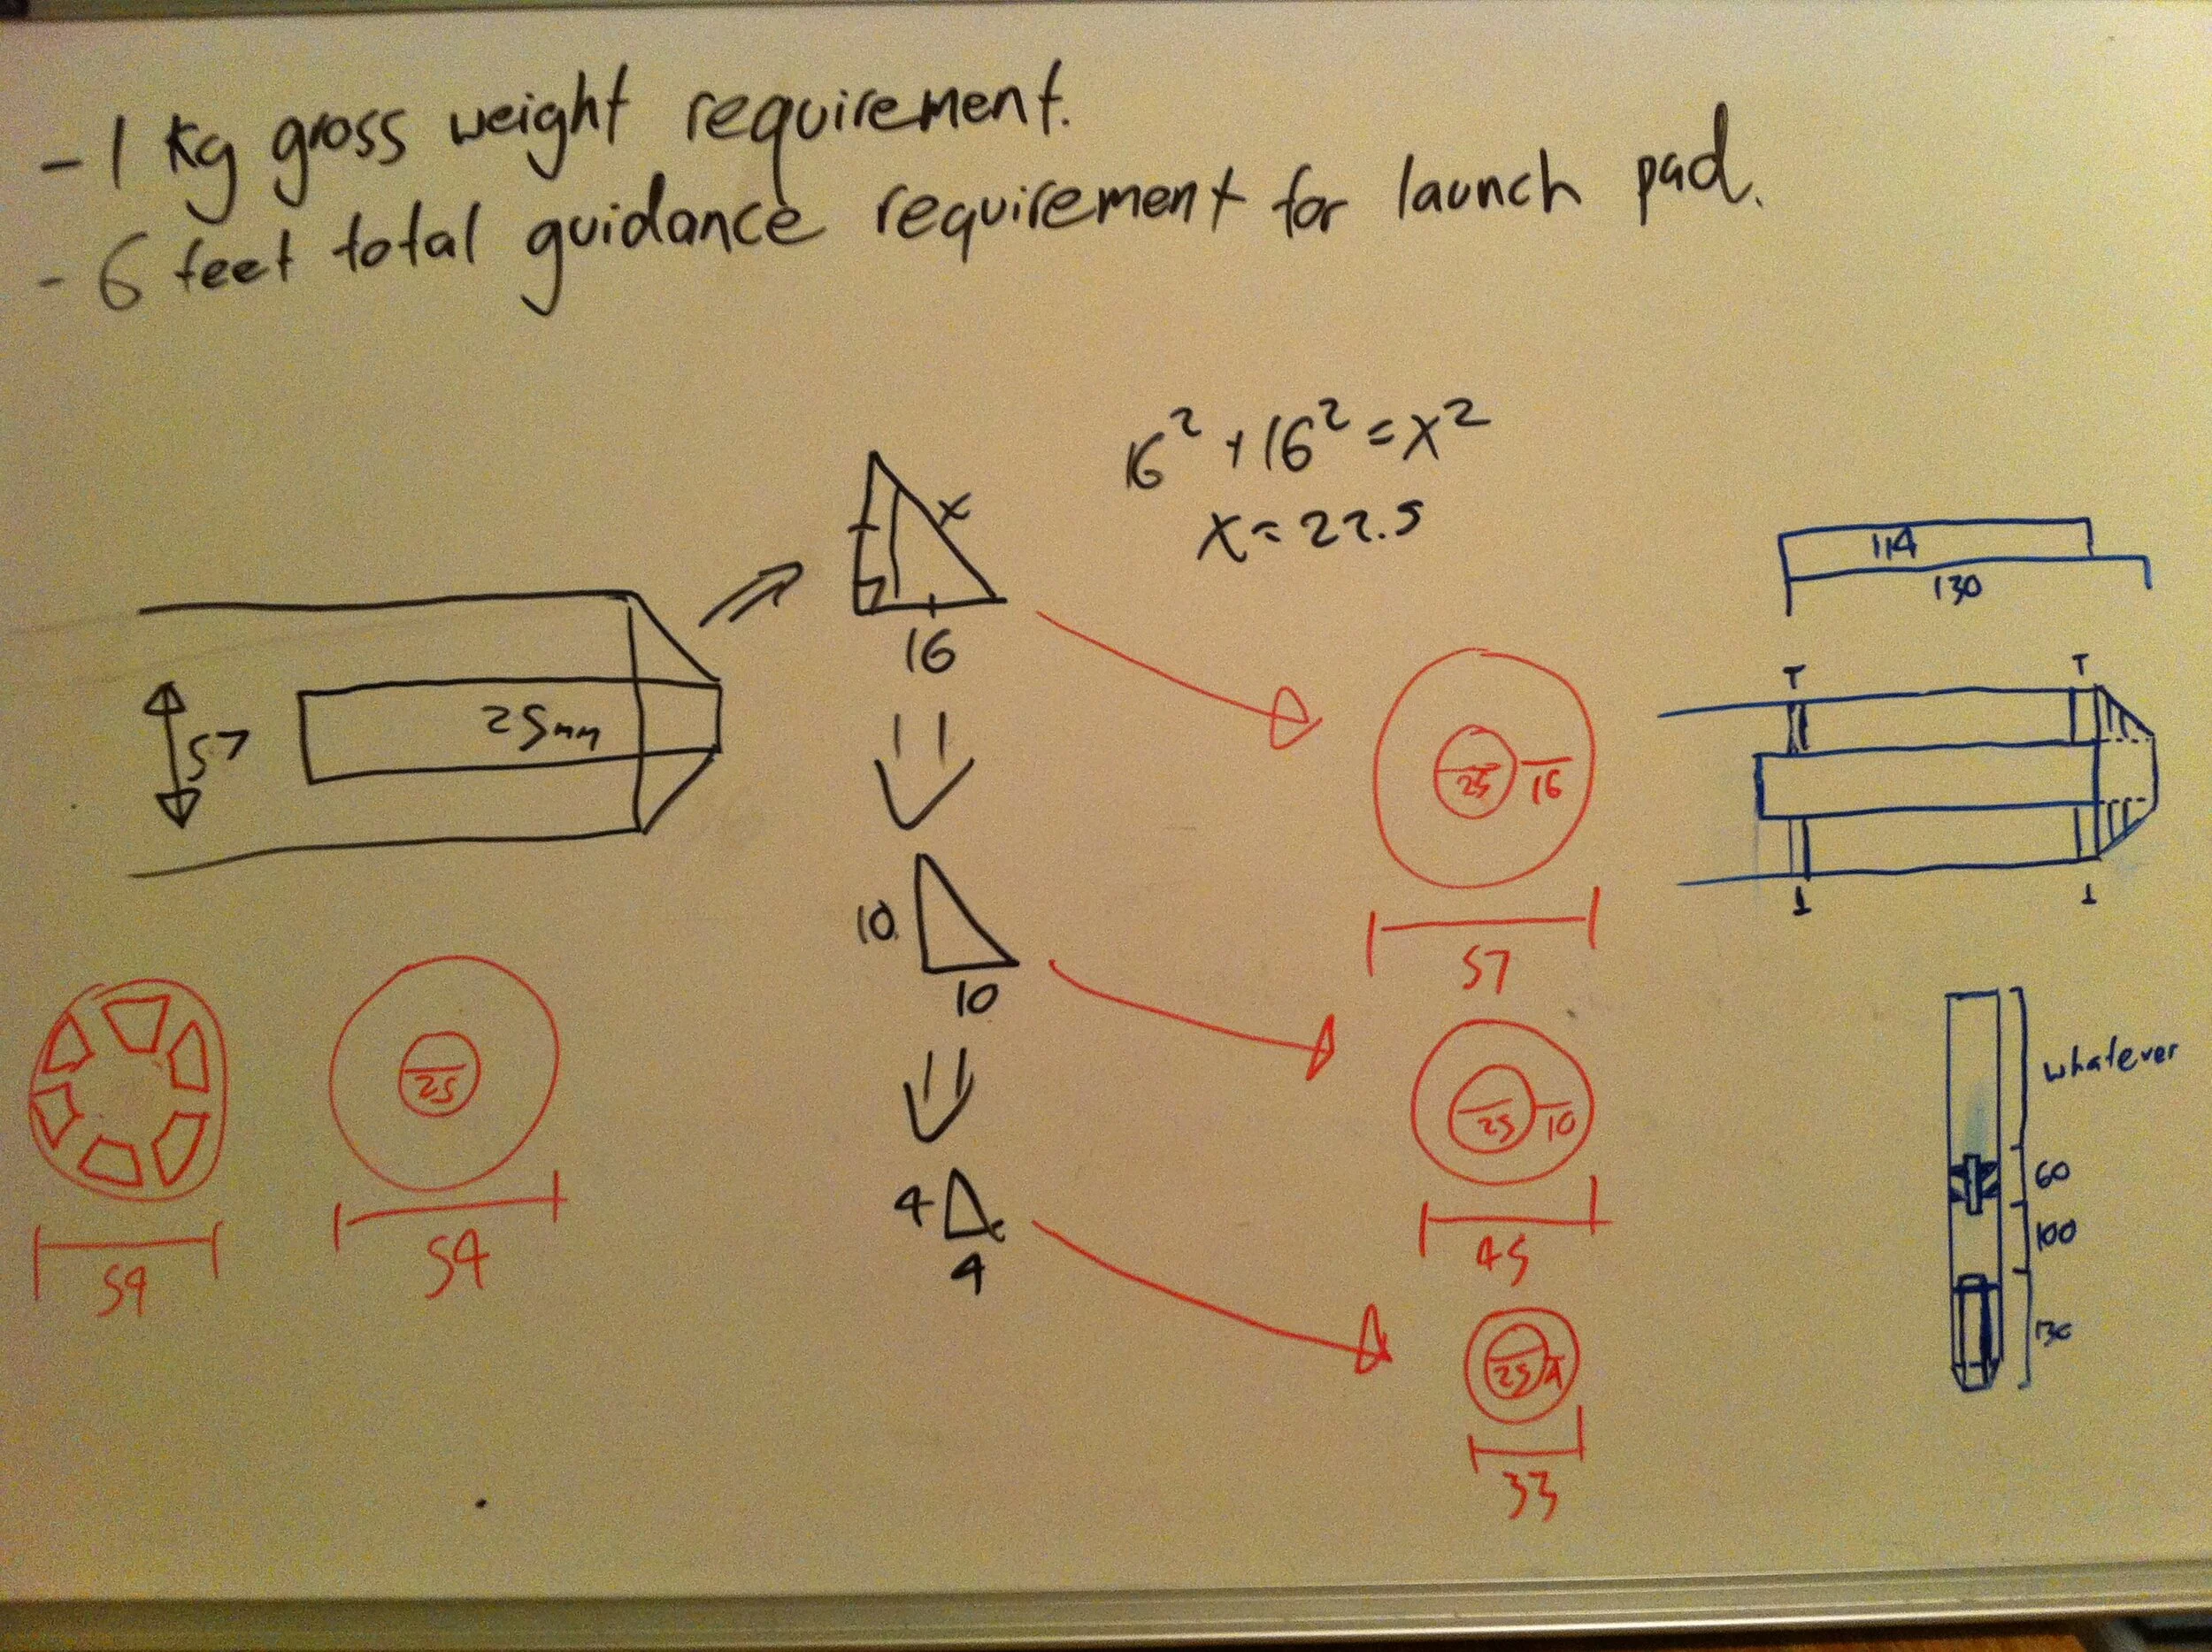 - 1 Kg gross weight requirement.
- 6 feet total guidance requirement for launch pad.
16² + 16² = x²
x = 22.5
x
16
57
25mm
10
10
4
4
25
16
57
25
10
45
25
4
33
54
25
54
114
130
T
T
whatever
60
100
130